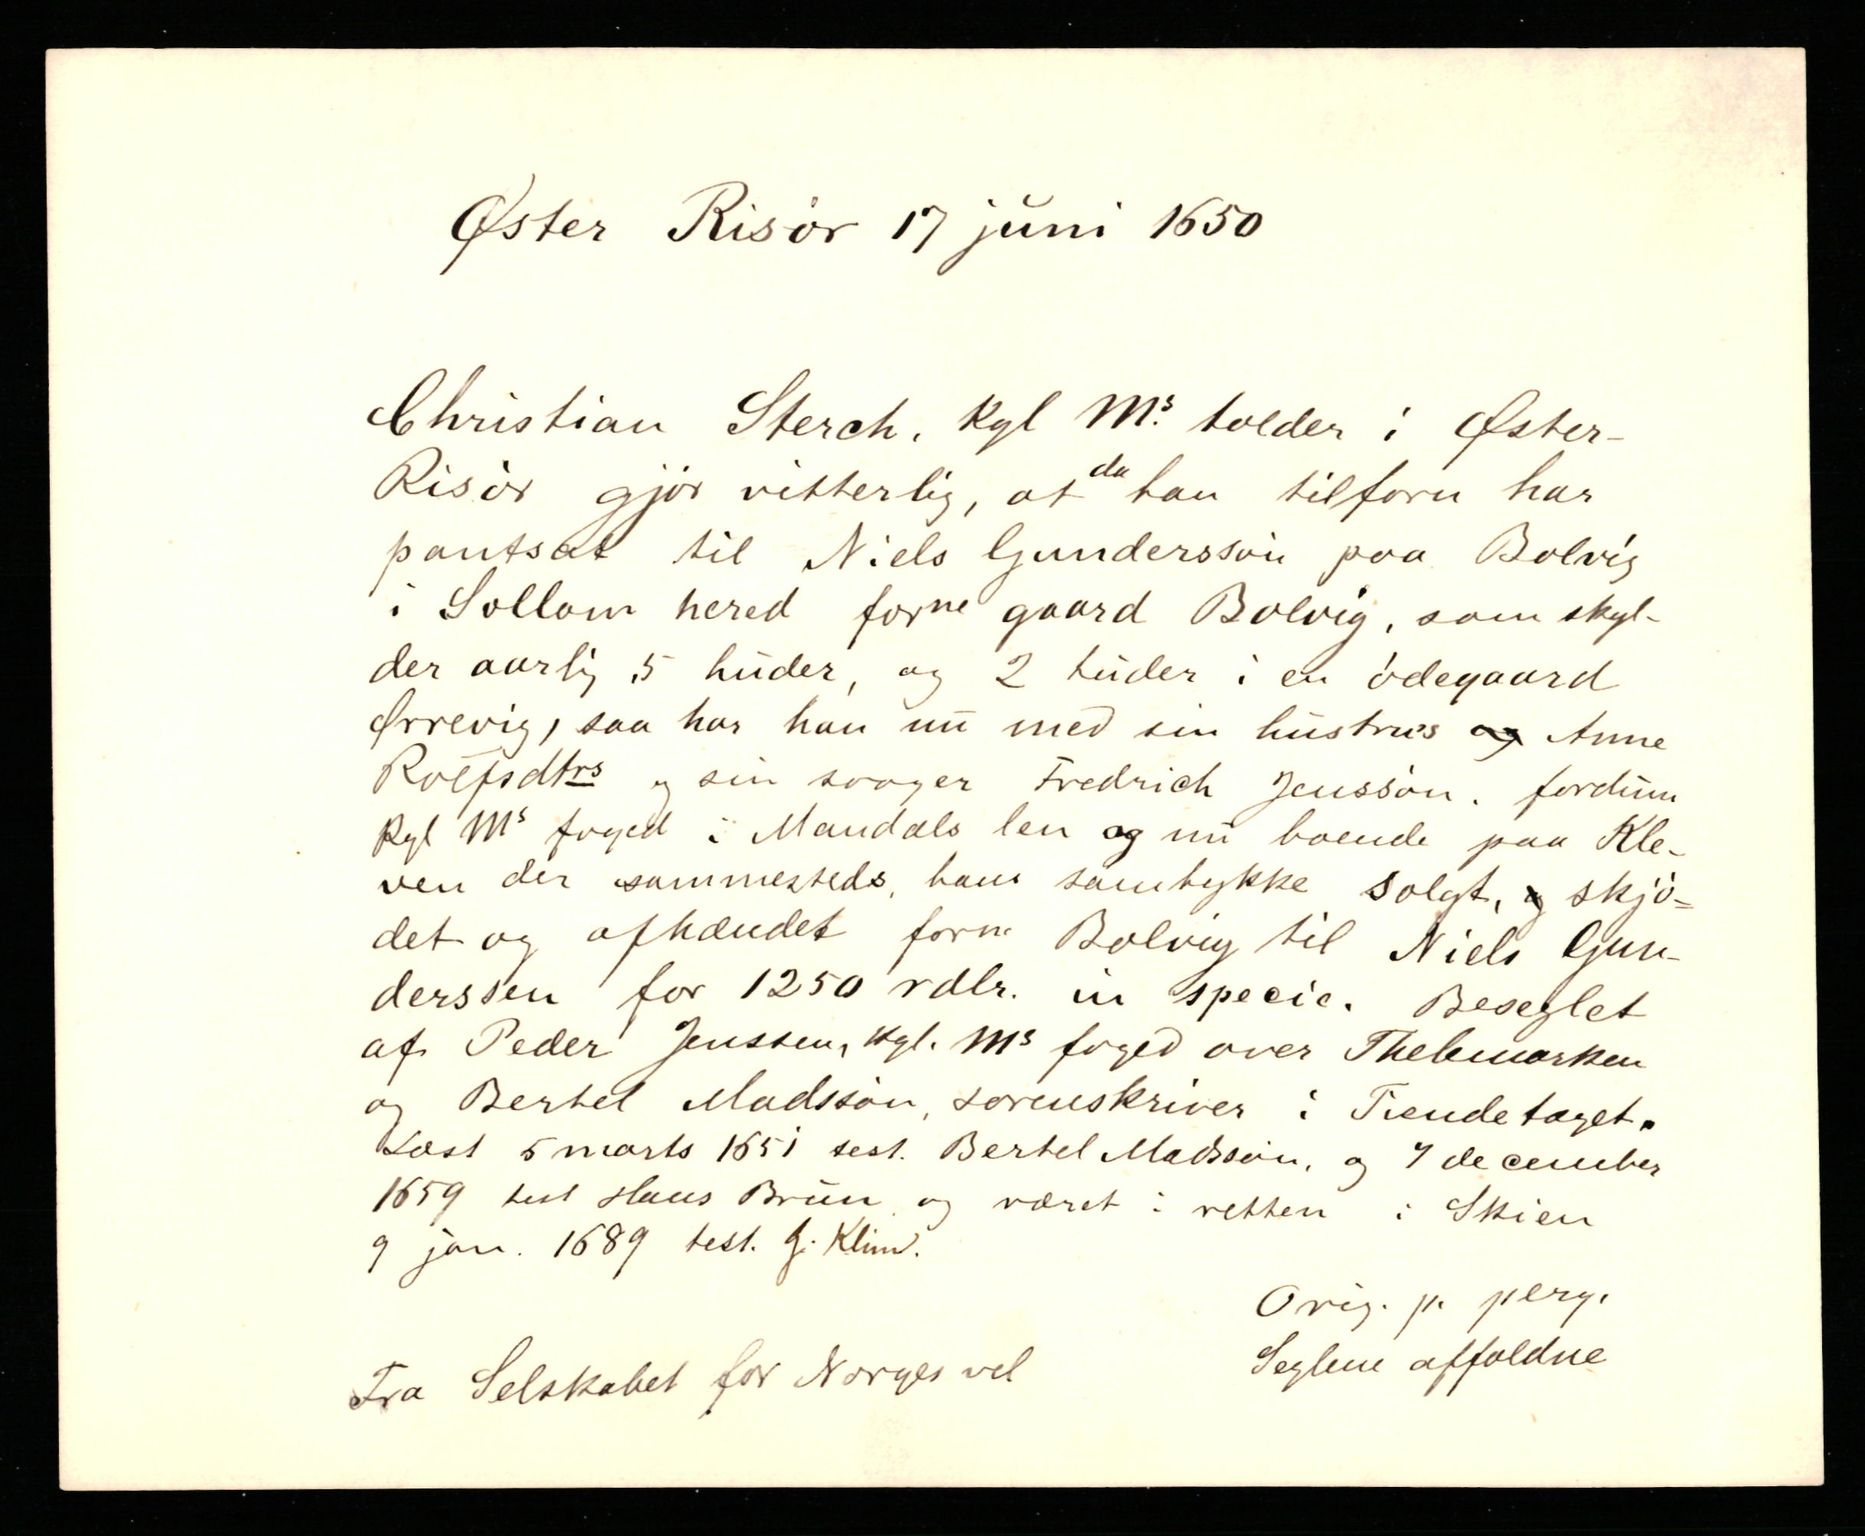 Øster Risör 17 juni 1650
Christian Sterch, kgl Ms. tolder i Øster-
Risör gjör vitterlig, at da han tilforn har
pantsat til Niels Gunderssön paa Bolvig
i Sollom hered forne gaard Bolvig, som skyl-
der aarlig 5 huder, og 2 huder i en ödegaard
Ørrevig, saa har han nu med sin hustrus og Anne
Rolfsdtrs og sin svoger Fredrich Jenssön, fordum
kgl Ms foged i Mandals len og nu boende paa Kle-
ven der sammesteds, hans samtykke solgt, og skjö-
det og afhændet forne Bolvig til Niels Gun-
derssen for 1250 rdlr. in specie. Beseglet
af Peder Jenssen, kgl. Ms foged over Thelemarken
og Bertel Madssön, sorenskriver i Tiendetaget.
Læst 5 marts 1651 test. Bertel Madssön, og 7 december
1659 test Hans Brun og været i retten i Skien
9 jan. 1689 test. G. Klim.
Orig. p. perg.
Seglene affaldne
Fra Selskabet for Norges vel